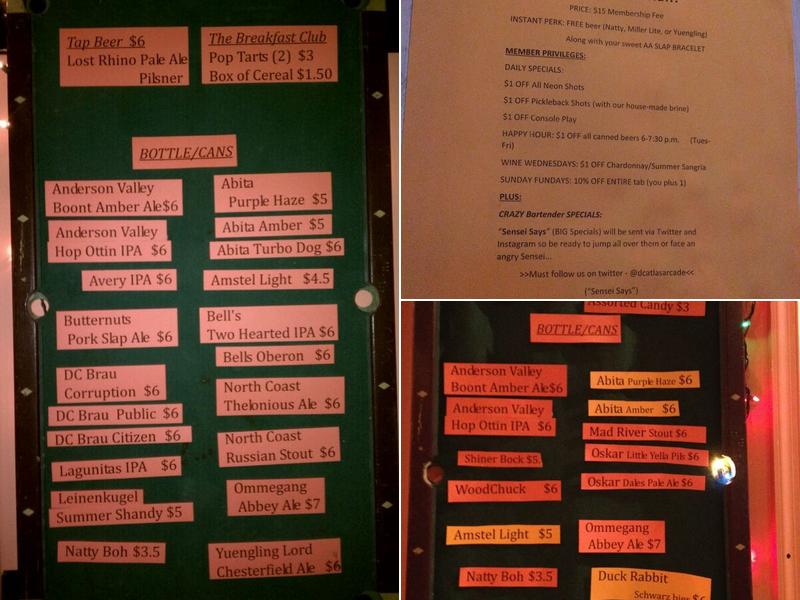 Tap Beer $6
Lost Rhino Pale Ale
Pilsner
The Breakfast Club
Pop Tarts (2) $3
Box of Cereal $1.50
BOTTLE/CANS
Anderson Valley
Boont Amber Ale$6
Anderson Valley
Hop Ottin IPA $6
Avery IPA $6
Butternuts
Pork Slap Ale $6
DC Brau
Corruption $6
DC Brau Public $6
DC Brau Citizen $6
Lagunitas IPA $6
Leinenkugel
Summer Shandy $5
Natty Boh $3.5
Abita
Purple Haze $5
Abita Amber $5
Abita Turbo Dog $6
Amstel Light $4.5
Bell's
Two Hearted IPA $6
Bells Oberon $6
North Coast
Thelonious Ale $6
North Coast
Russian Stout $6
Ommegang
Abbey Ale $7
Yuengling Lord
Chesterfield Ale $6
PRICE: $15 Membership Fee
INSTANT PERK: FREE beer (Natty, Miller Lite, or Yuengling)
Along with your sweet AA SLAP BRACELET
MEMBER PRIVILEGES:
DAILY SPECIALS:
$1 OFF All Neon Shots
$1 OFF Pickleback Shots (with our house-made brine)
$1 OFF Console Play
HAPPY HOUR: $1 OFF all canned beers 6-7:30 p.m. (Tues-
Fri)
WINE WEDNESDAYS: $1 OFF Chardonnay/Summer Sangria
SUNDAY FUNDAYS: 10% OFF ENTIRE tab (you plus 1)
PLUS:
CRAZY Bartender SPECIALS:
"Sensei Says" (BIG Specials) will be sent via Twitter and
Instagram so be ready to jump all over them or face an
angry Sensei...
>>Must follow us on twitter - @dcatlasarcade<<
("Sensei Says")
Assorted Candy $3
BOTTLE/CANS
Anderson Valley
Boont Amber Ale$6
Anderson Valley
Hop Ottin IPA $6
Shiner Bock $5.
WoodChuck $6
Amstel Light $5
Natty Boh $3.5
Abita Purple Haze $6
Abita Amber $6
Mad River Stout $6
Oskar Little Yella Pils $6
Oskar Dales Pale Ale $6
Ommegang
Abbey Ale $7
Duck Rabbit
Schwarz bier $6